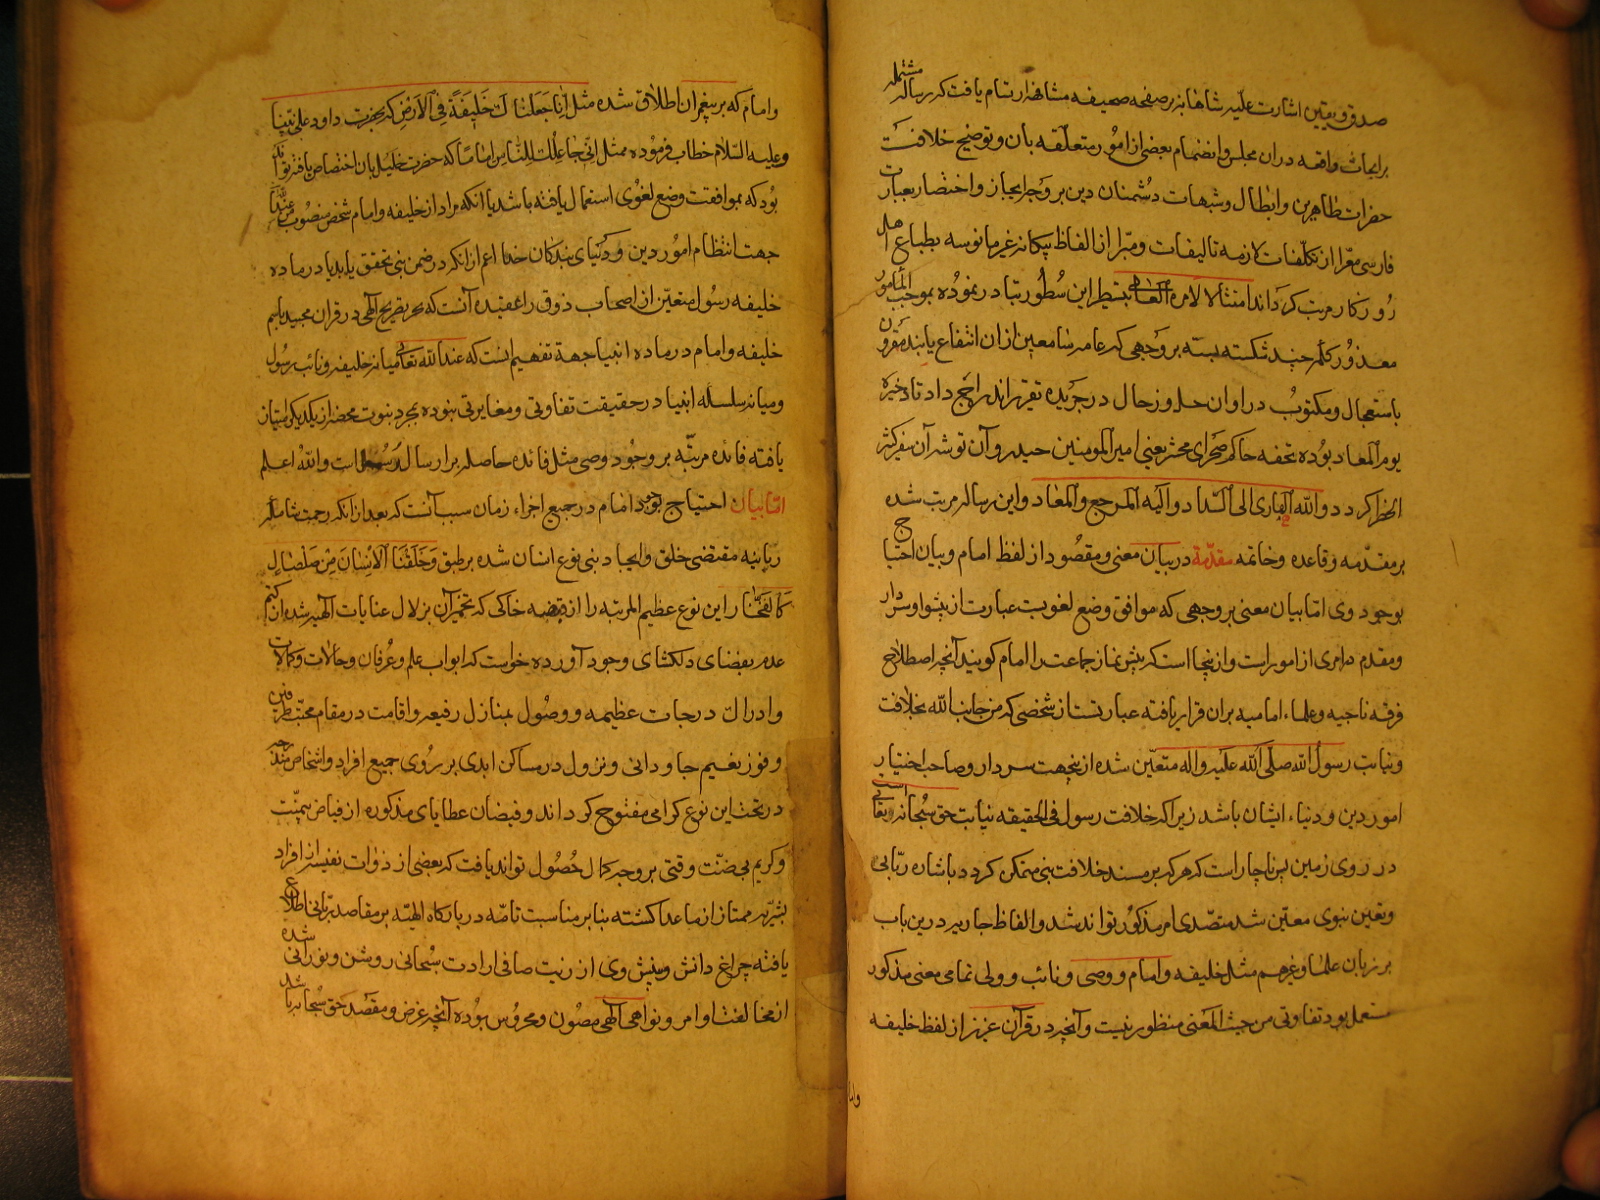 صدق و یقین اشارت علیه شاهانه بر صفحه صحیفه مشافه ارتسام یافت که رساله مشتمله
بر ابحاث واقعه دران مجلس و انضمام بعضی از امور متعلّقه بان و توضیح خلافت
حضرات طاهرین و ابطال و شبهات دشمنان دین بر وجه ایجاز و اختصار بعبارت
فارسی معرّا از تکلّفات لازمه تالیفات و مبّرا از الفاظ بیکانه غیر مانوسه بطباع اهل
روزکار مرتب کرداند امتثالا لامره العالی بتسطیر این سطور تبادر نموده بموجب المامور
معذور کلمه چند شکسته بسته بر وجهی که عامه سامعین ازان انتفاع یابند مقرون
باستعجال و مکتوب در اوان حل و زحال در جریده تقریر اندراج داد تا ذخیره
یوم المعاد بوده تحفه حاکم صحرای محشر یعنی امیر المومنین حیدر و آن توشه آن سفر کثیر
الخطر کردد والله الهادی الی السّداد و الیه المرجع و المعاد و این رساله مرتب شده
بر مقدمه و قاعده و خاتمه مقدّمة در بیان معنی و مقصود از لفظ امام و بیان احتیاج
بوجود وی امّا بیان معنی بر وجهی که موافق وضع لغویست عبارت از پیشوا و سردار
و مقدم در امری از امور است و ازینجا است که پیش نماز جماعت را امام کویند آنچه اصطلاح
فرقه ناجیه و علماء امامیه بران قرار یافته عبارتست از شخصی که من جانب الله بخلافت
و نیابت رسول الله صلّی الله علیه و اله متعیّن شده ازینجهت سردار و صاحب اختیار
امور دین و دنیاء ایشان باشد زیرا که خلافت رسول فی الحقیقه نیابت حق سبحانه و تعالی است
در روی زمین پس ناچار است که هر که بر مسند خلافت نبی متمکن کردد باشاره ربّانی
و تعین نبوی معیّن شد متصّدی امر مذکور تواند شد و الفاظ جاریه درین باب
بر زبان علما و غیرهم مثل خلیفه و امام و وصی و نائب و ولی تمامی معنی مذکور
مستعمل بود تفاوتی من حیث المعنی منظور نیست و آنچه در قرآن عزیز از لفظ خلیفه
وامام
و امام که بر پیغمبران اطلاق شده مثل انا جعلناك خلیفة فی الارض که بحضرت داود علی نبیّنا
و علیه السّلام خطاب فرموده و مثل انّی جاعلك للنّاس اماما که حضرت خلیل بان اختصاص یافته تواند
بود که بموافقت وضع لغوی استعمال یافته باشد یا انکه مراد از خلیفه و امام شخص منصوب من عند الله
جهت انتظام امور دین و دنیای بندکان خدا اعم از انکه در ضمن نبی تحقق یابد یا در ماده
خلیفه رسول متعیّن از اصحاب ذوق را عقیده آنست که بتصریح الهی در قران مجید باسم
خلیفه و امام در ماده انبیا جهة تفهیم اینست که عند الله تعالی میانه خلیفه و نائب رسول
و میانه سلسله انبیا در حقیقت تفاوتی و مغایرتی نبوده بمجرد نبوت محضه از یکدیکر امتیاز
یافته فائده مرتبّه بر وجود وصی مثل فائده حاصله بر ارسال رسل است والله اعلم
امّا بیان احتیاج بوجود امام در جمیع اجزاء زمان سبب آنست که بعد از انکه رحمت شامله
ربانیه مقتضی خلق و ایجاد بنی نوع انسان شده بر طبق و خلقنا الانسان من صلصال
کالفخّار این نوع عظیم المرتبه را از قبضه خاکی که تخمیر آن بزلال عنایات الهیه شده از کتم
عدم بفضای دلکشای وجود آورده خواست که ابواب علم و عرفان و حالات و کمالات
و ادراك درجات عظیمه و وصول بمنازل رفیعه و اقامت در مقام محبّت قرین
و فوز بنعیم جاودانی و نزول در مساکن ابدی بر روی جمیع افراد و اشخاص مندرجه
در تحت این نوع کرامی مفتوح کرداند و فیضان عطایای مذکوره از فیاض بیمنّت
و کریم بی ضنّت وقتی بر وجه کمال حصول تواند یافت که بعضی از ذوات نفیسه از افراد
بشریّه ممتاز از ماعدا کشته بنا بر مناسبت تامّه در بارکاه الهیّه بر مقاصد ربّانی اطلاع
یافته چراغ دانش و بینش وی از زیت صافی ارادت سبحانی روشن و نورانی شده
از مخالفت اوامر و نواهی الهی مصون و محروس بوده آنچه غرض و مقصد حق سبحانه باشد